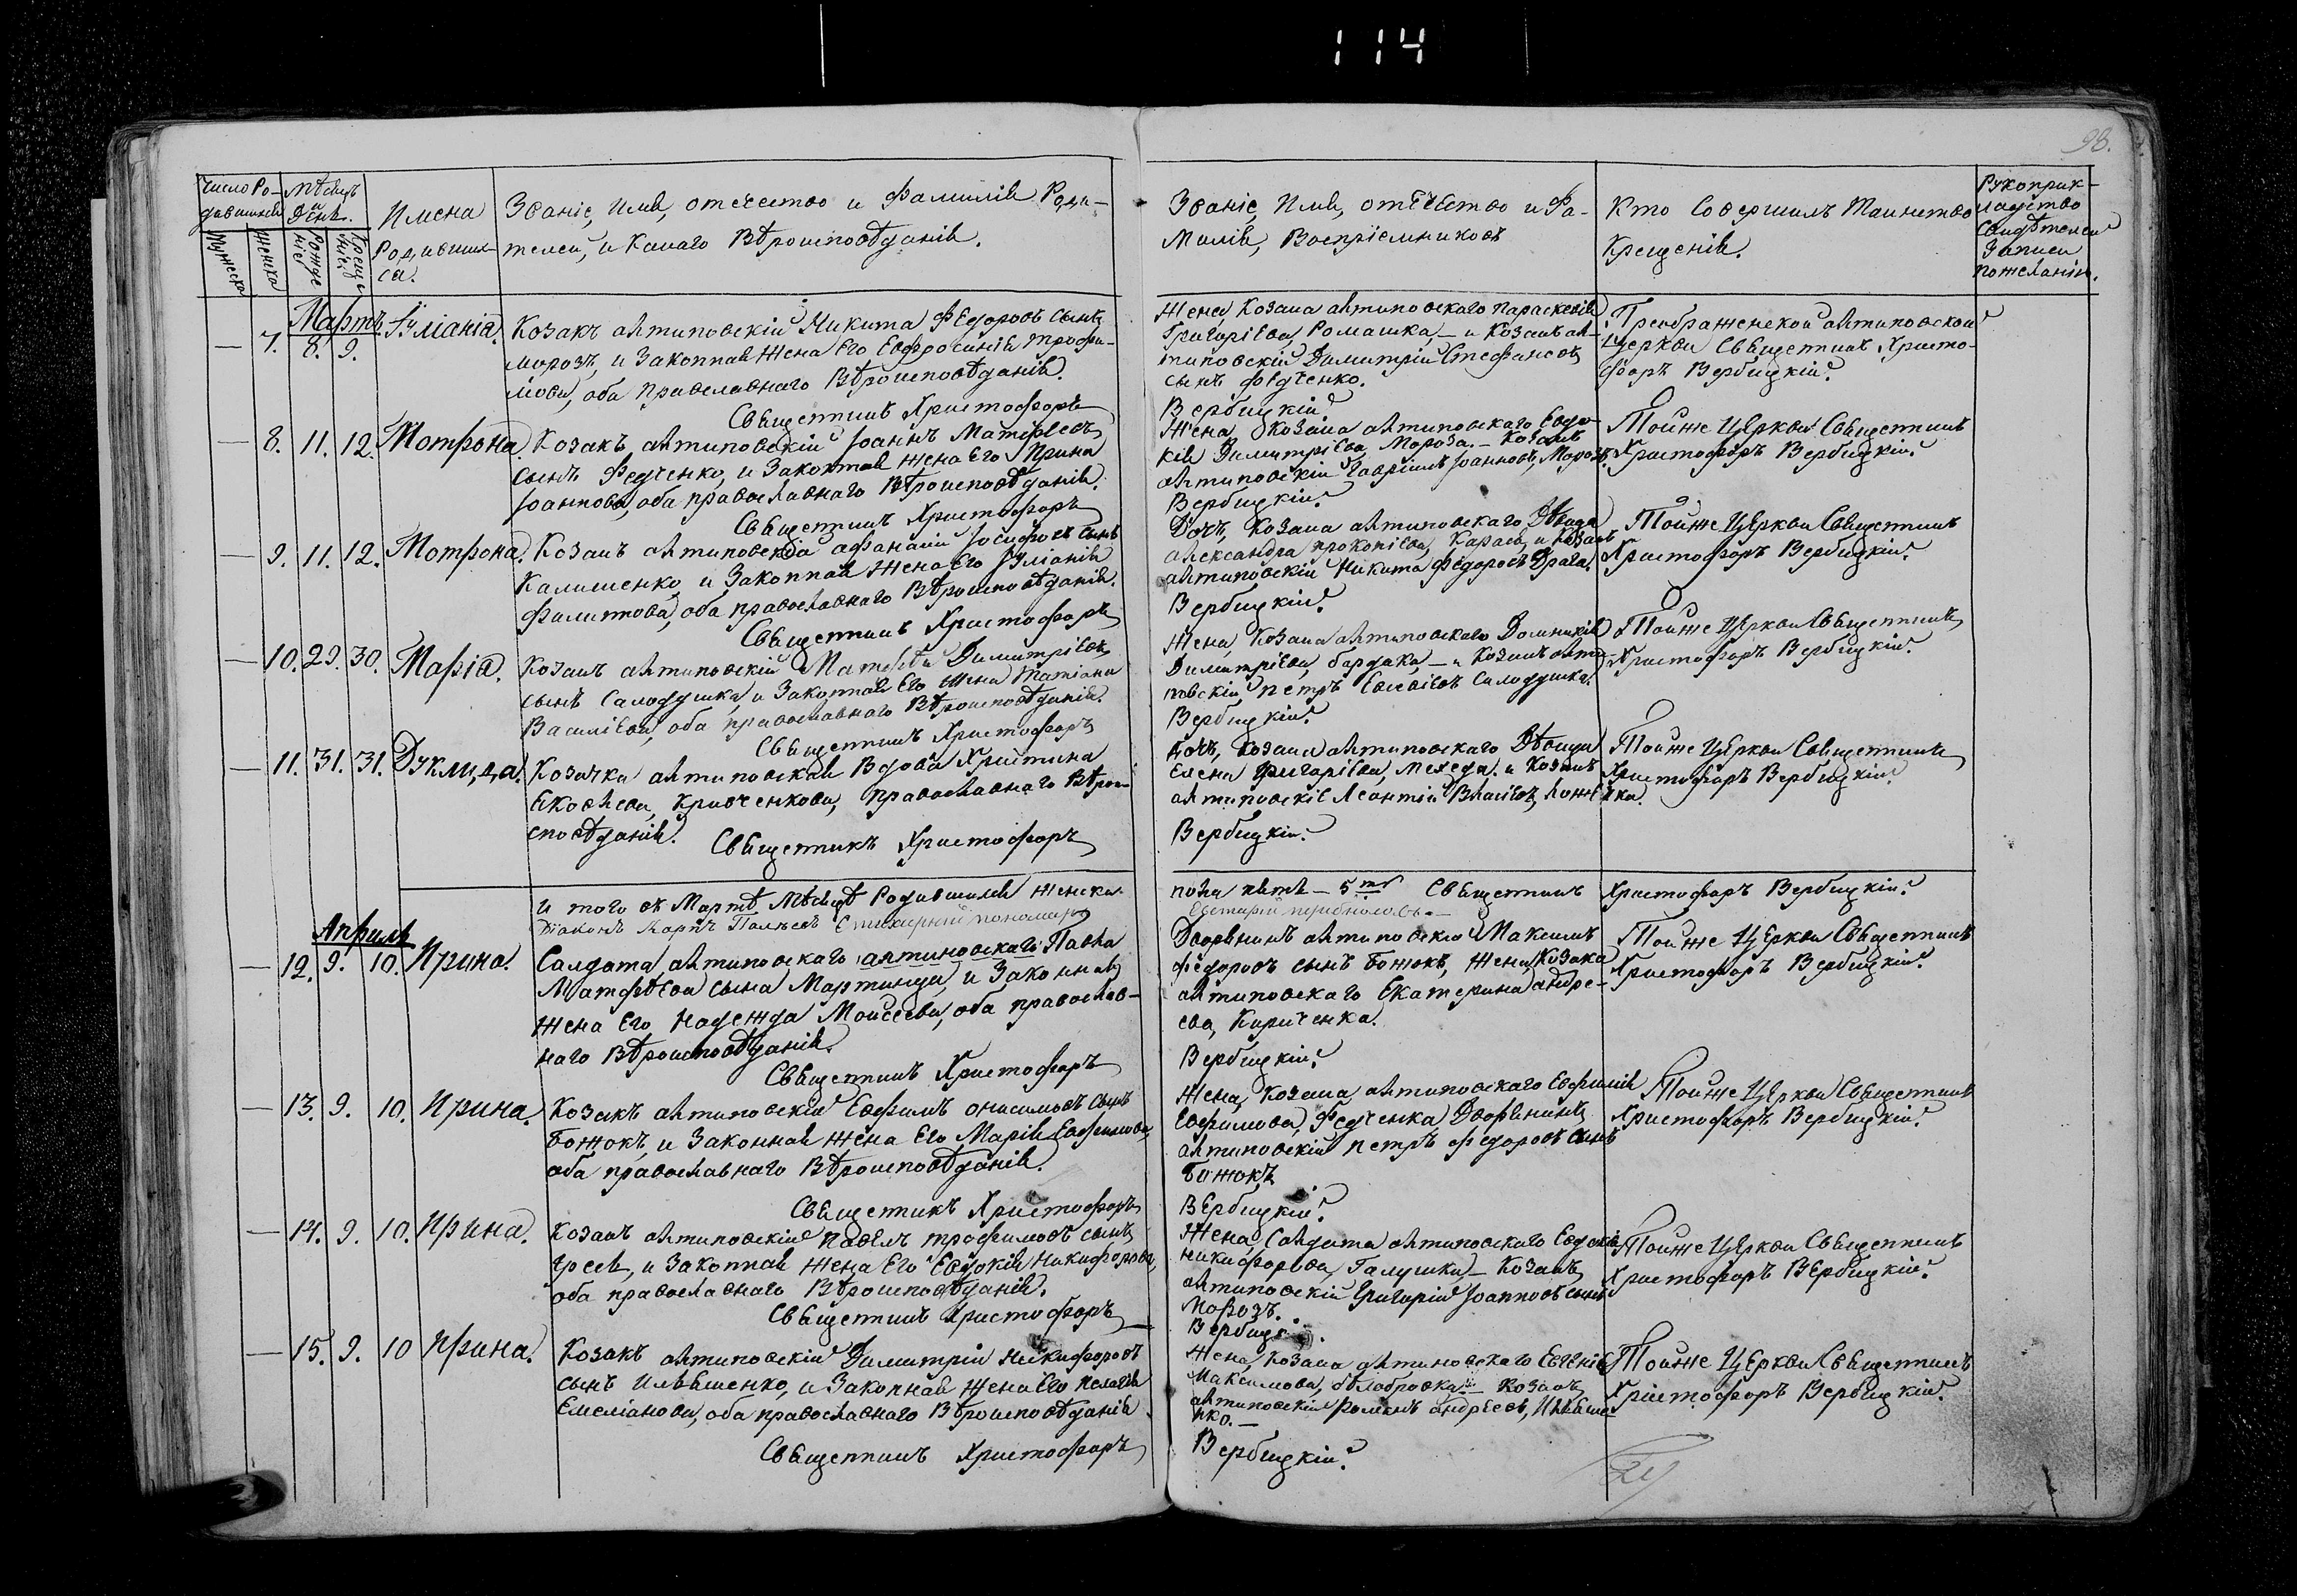 114
98.
Число Ро-
дившихся
Мужеска
Женска
Мѣсяцъ
и
День.
Рожде
нія
Креще
нія.
Имена
Родивших-
ся.
Званіе, Имя, отечество и Фамилія Роди-
телей, и Какаго Вѣроисповѣданія.
Званіе, Имя, отечество и Фа-
милія, Воспріемниковъ
Кто Совершилъ Таинство
Крещенія.
Рукоприк-
ладство
Свидѣтелей
Записи
пожеланію.
Мартъ
— 7. 8. 9. Іуліанія.
Козакъ антиповскій Никита Федоровъ сынъ
морозъ, и Законная Жена Его Евфросинія трофи-
мова, оба Православнаго Вѣроисповѣданія.
Священникъ Христофоръ
Жена, Козака антиповскаго Параскевія
Григоріева, Ромашка, — и Козакъ ан-
типовскій Димитрій Стефановъ
сынъ Федченко.
Вербицкій
Преображенской антиповской
Церкви Священникъ Христо-
форъ Вербицкій
— 8. 11. 12. Мотрона.
Козакъ антиповскій Іоаннъ Матфѣевъ
сынъ Федченко, и Законная жена Его Ирина
Іоаннова, оба православнаго Вѣроисповѣданія.
Священникъ Христофоръ
Жена Козака антиповскаго Евдо-
кія Димитріева, Мороза. — Козакъ
антиповскій Гавріилъ Іоанновъ, Морозъ.
Вербицкій
Тойже Церкви Священникъ
Христофоръ Вербицкій
— 9. 11. 12. Мотрона.
Козакъ антиповскій афанасій Іосифовъ сынъ
Калишенко, и Законная Жена Его Іуліанія
Филиппова, оба православнаго Вѣроисповѣданія.
Священникъ Христофоръ
Дочь, Козака антиповскаго Дѣвица
александра прокопіева, Карася, и Козакъ
антиповскій Никита Федоровъ Драга.
Вербицкій
Тойже Церкви Священникъ
Христофоръ Вербицкій
— 10. 29. 30. Марія.
Козакъ антиповскій Матфѣй Димитріевъ
сынъ Салодушка, и Законная Его Жена Татіана
Василіева, оба православнаго Вѣроисповѣданія.
Священникъ Христофоръ
Жена, Козака антиповскаго Домникія
Димитріева, бардака, — и Козакъ анти-
повскій петръ Евсевіевъ Салодушка.
Вербицкій
Тойже Церкви Священникъ
Христофоръ Вербицкій
— 11. 31. 31. Дуклида.
Козачка антиповская Вдова Христина
Яковлева, Кривченкова, Православнаго Вѣрои-
споведанія.
Священникъ Христофоръ
дочь, Козака антиповскаго Дѣвица
Елена Григоріева, Мехеда. и Козакъ
антиповскій Леонтій Власіевъ,
Вербицкій
Тойже Церкви Священникъ
Христофоръ Вербицкій
И того въ Мартѣ Мѣсяцѣ Родившихся Женска
пола пять — 5ть Священникъ Христофоръ Вербицкій
Діаконъ Карпъ
Апрѣль
— 12. 9. 10. Ирина.
Салдата антиповскаго антиповскаго Павла
Матфѣева сына Мартинца, и Законная
Жена Его, Надежда Моисеева, оба православ-
наго Вѣроисповѣданія.
Священникъ Христофоръ
Дворянинъ антиповскій Максимъ
Федоровъ сынъ Божокъ, Жена Козака
антиповскаго Екатерина андре-
ева, Кириченка.
Вербицкій
Тойже Церкви Священникъ
Христофоръ Вербицкій
— 13. 9. 10. Ирина.
Козакъ антиповскій Евфимъ онисимовъ сынъ
Божокъ, и Законная жена Его Марія Евфимова,
оба православнаго Вѣроисповѣданія.
Священникъ Христофоръ
Жена, Козака антиповскаго Евфимія
Евфимова, Федченка, Дворянинъ
антиповскій петръ Федоровъ сынъ
Божокъ
Вербицкій
Тойже Церкви Священникъ
Христофоръ Вербицкій
— 14. 9. 10. Ирина.
Козакъ антиповскій павелъ трофимовъ сынъ
и Законная Жена Его Евдокія Никифорова,
оба православнаго Вѣроисповѣданія.
Священникъ Христофоръ
Жена, Салдата антиповскаго Евдокія
никифорова, Галушка — Козакъ
антиповскій Григорій Іоанновъ сынъ
Морозъ.
Вербицкій
Тойже Церкви Священникъ
Христофоръ Вербицкій
— 15. 9. 10 Ирина.
Козакъ антиповскій Димитрій Никифоровъ
сынъ Ильяшенко, и Законная Жена Его пелагія
Емеліанова, оба православнаго Вѣроисповѣданія
Священникъ Христофоръ
Жена, Козака антиповскаго Евгенія
Максимова, бѣлобровка — Козакъ
антиповскій Романъ андреевъ, Ильяше-
нко. —
Вербицкій
Тойже Церкви Священникъ
Христофоръ Вербицкій